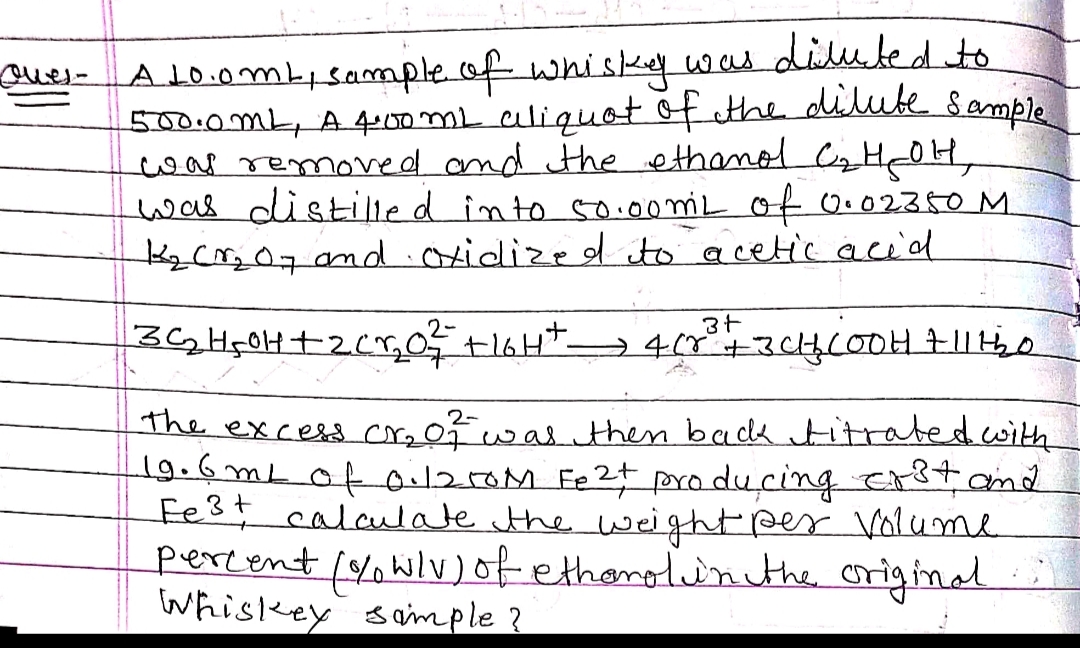 Ques- A 10.0mL, sample of whiskey was diluted to
500.0mL, A 4.00mL aliquot of the dilute sample
was removed and the ethanol C₂H₅OH,
was distilled into 50.00mL of 0.02350 M
K₂Cr₂O₇ and oxidized to acetic acid
3C₂H₅OH + 2Cr₂O₇²⁻ + 16H⁺ → 4Cr³⁺ + 3CH₃COOH + 11H₂O
the excess Cr₂O₇²⁻ was then back titrated with
19.6mL of 0.1250M Fe²⁺, producing Cr³⁺ and
Fe³⁺, calculate the weight per volume
percent (% W/V) of ethanol in the original
whiskey sample?